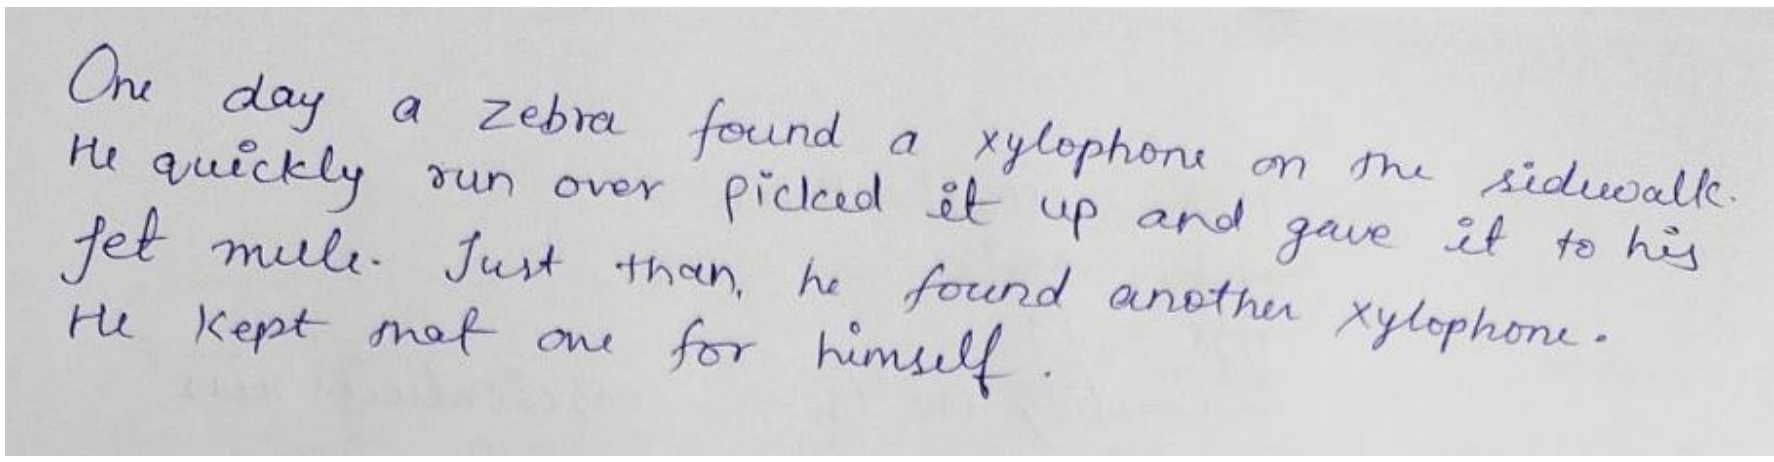 One day a zebra found a xylophone on the sidewalk.
He quickly run over picked it up and gave it to his
fet mule. Just than, he found another xylophone.
He kept that one for himself.